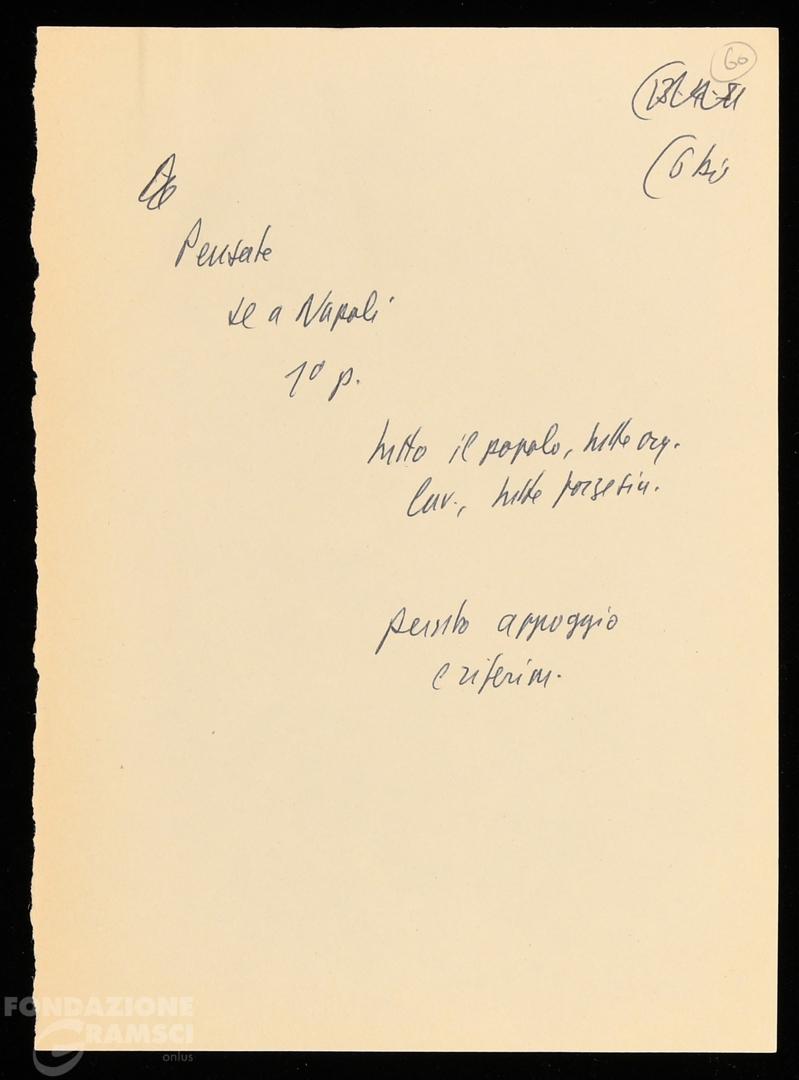 60
(6 bis
Pensate
se a Napoli
1º p.
tutto il popolo, tutte org.
lav., tutte forze sin.
appoggio
e riferim.
FONDAZIONE
GRAMSCI
onlus